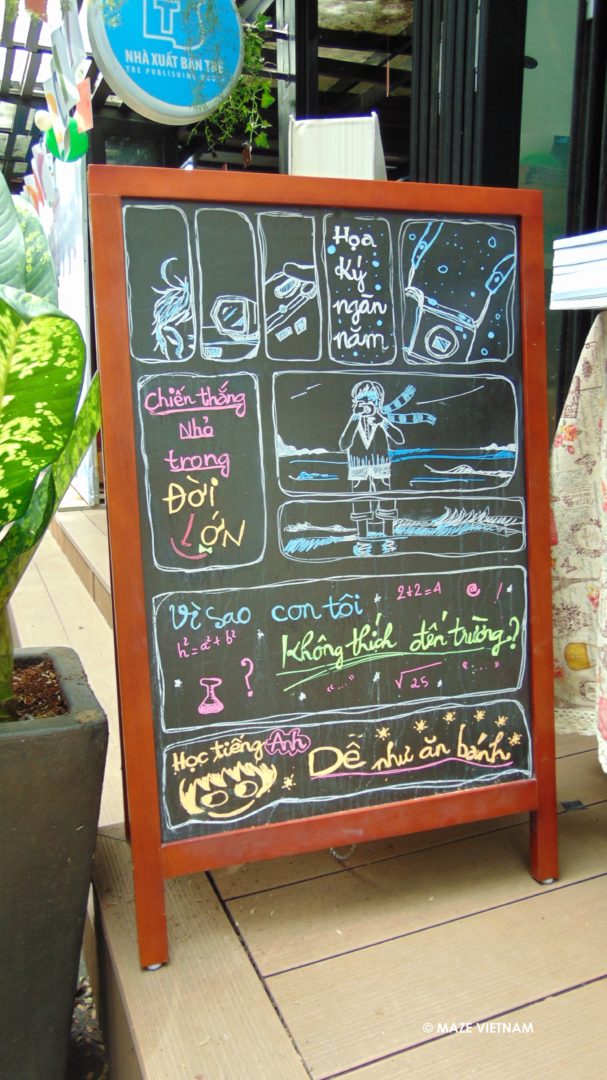 NHÀ XUẤT BẢN TRẺ
THE PUBLISHING HOUSE
Họa
Ký
ngàn
năm
Chiến thắng
Nhỏ
trong
Đời
Lớn
Vì sao con tôi
2+2=4 @ !
h²=a²+b²
Không thích đến trường?
?
"..." √25 "....."
Học tiếng Anh
Dễ như ăn bánh
© MAZE VIETNAM